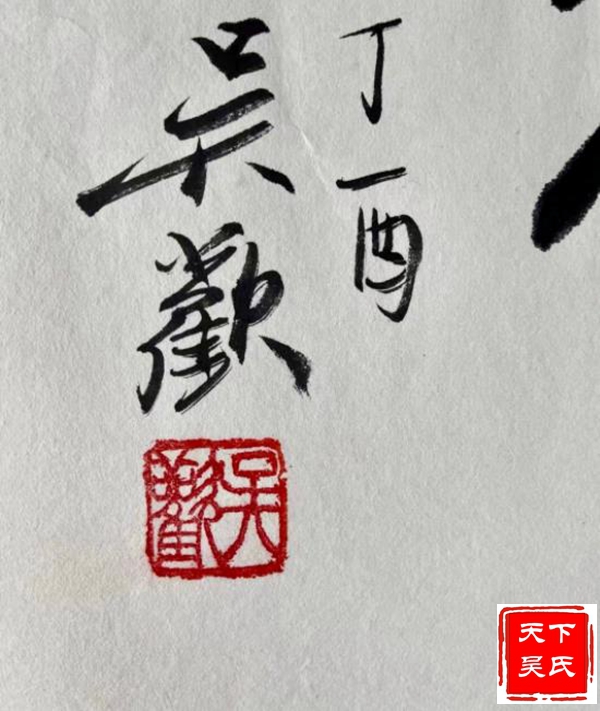 丁酉
吴歡
吴歡
天下
吴氏